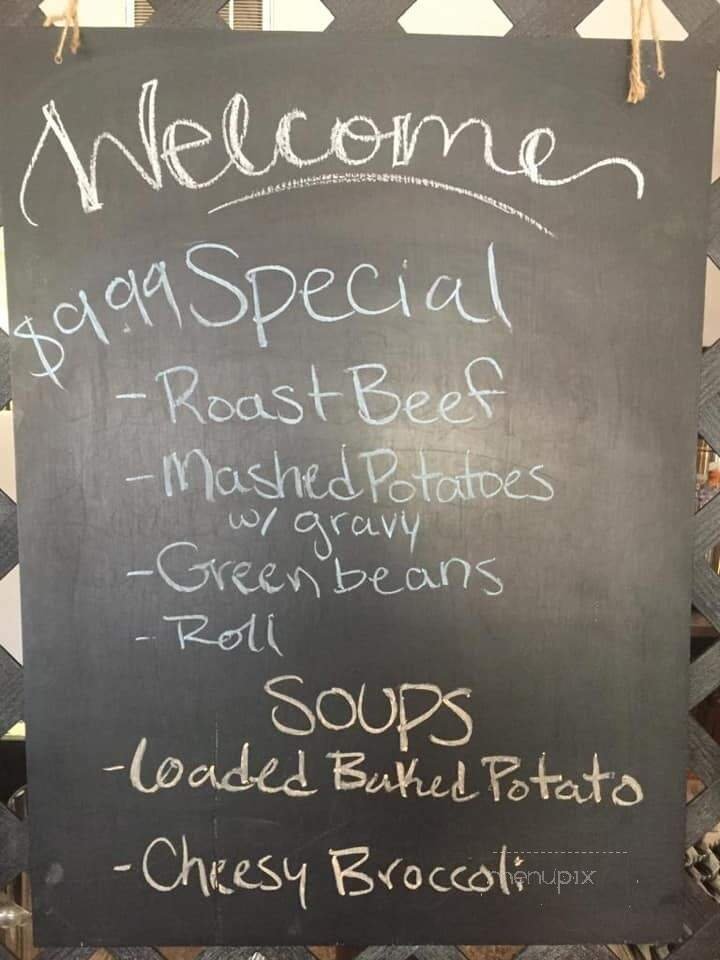 Welcome
$9.99 Special
- Roast Beef
- Mashed Potatoes
w/ gravy
- Green beans
- Roll
Soups
- Loaded Baked Potato
- Cheesy Broccoli
menupix